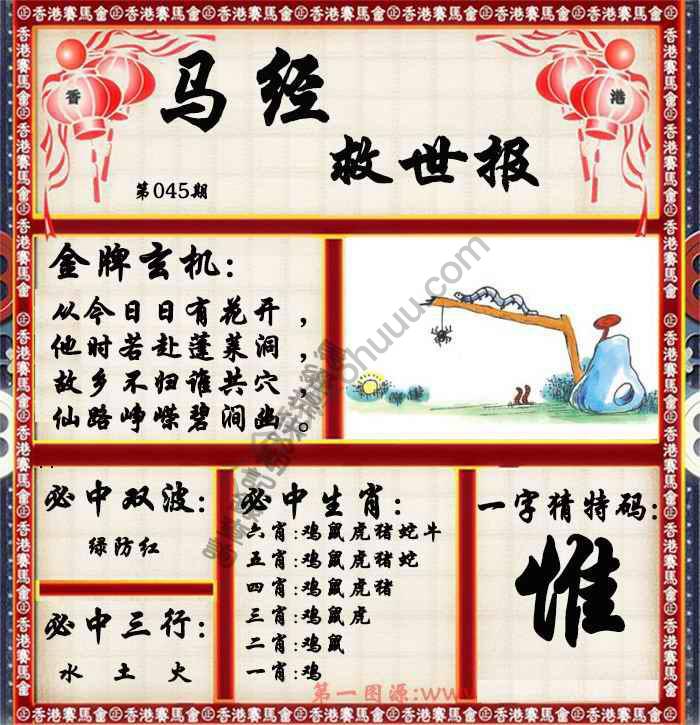 香港賽馬會
香 港
马经
救世报
第045期
金牌玄机：
从今日日有花开，
他时若赴蓬莱洞，
故乡不归谁共穴，
仙路峥嵘碧涧幽。
必中双波：
绿防红
必中三行：
水 土 火
必中生肖：
六肖:鸡鼠虎猪蛇牛
五肖:鸡鼠虎猪蛇
四肖:鸡鼠虎猪
三肖:鸡鼠虎
二肖:鸡鼠
一肖:鸡
一字猜特码：
惟
第一图源:www